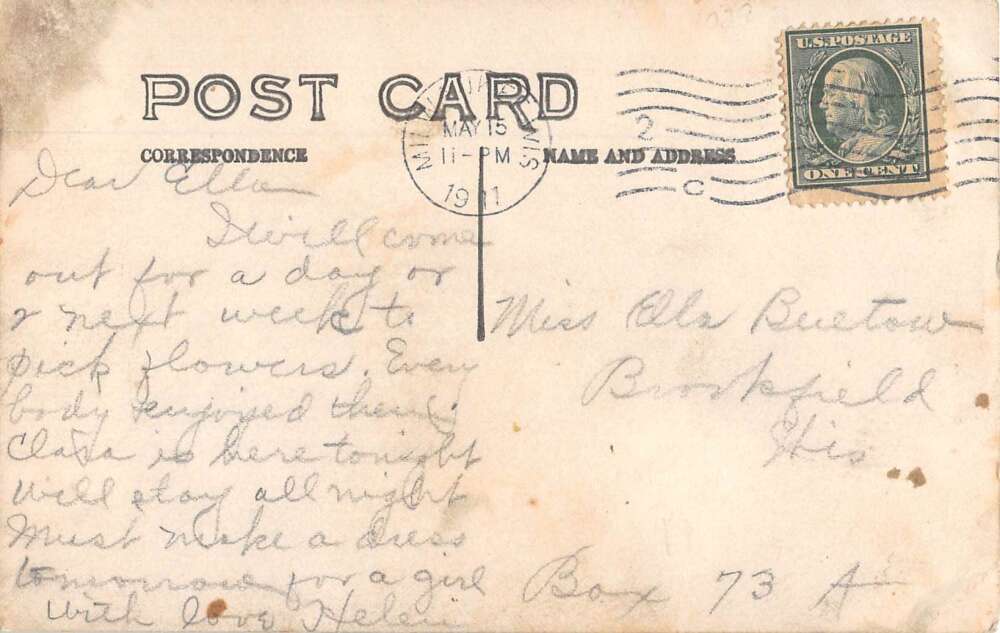 POST CARD
U.S. POSTAGE
ONE CENT
MILWAUKEE, WIS
MAY 15
11-PM
1911
2
C
CORRESPONDENCE
NAME AND ADDRESS
Dear Ella
I will come
out for a day or
2 next week to
pick flowers. Every
body enjoyed them.
Clara is here tonight
will stay all night
Must make a dress
tomorrow for a girl
With love Helen
Miss Ella Buetow
Brookfield
Wis
Box 73 A